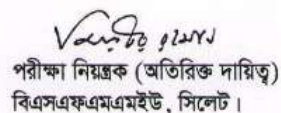 পরীক্ষা নিয়ন্ত্রক (অতিরিক্ত দায়িত্ব)
বিএসএফএমএমইউ, সিলেট।